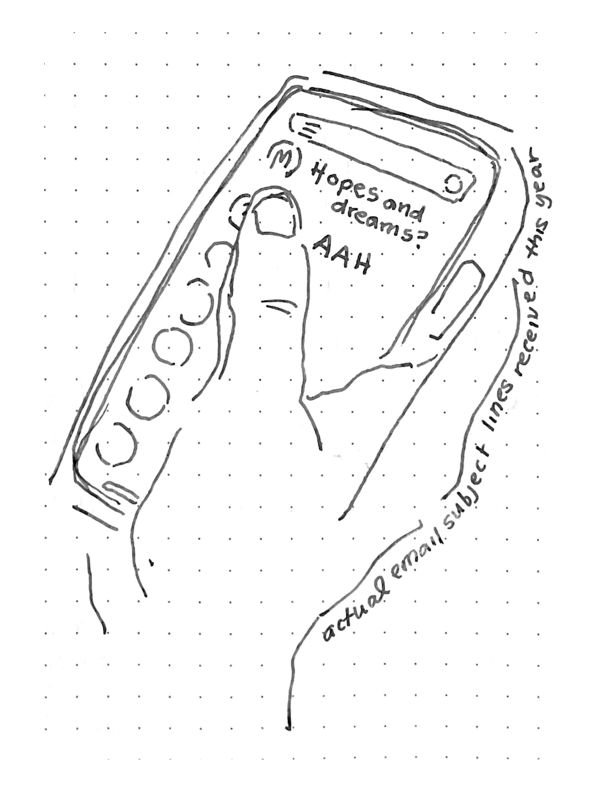 M
Hopes and
dreams?
AAH
actual email subject lines received this year